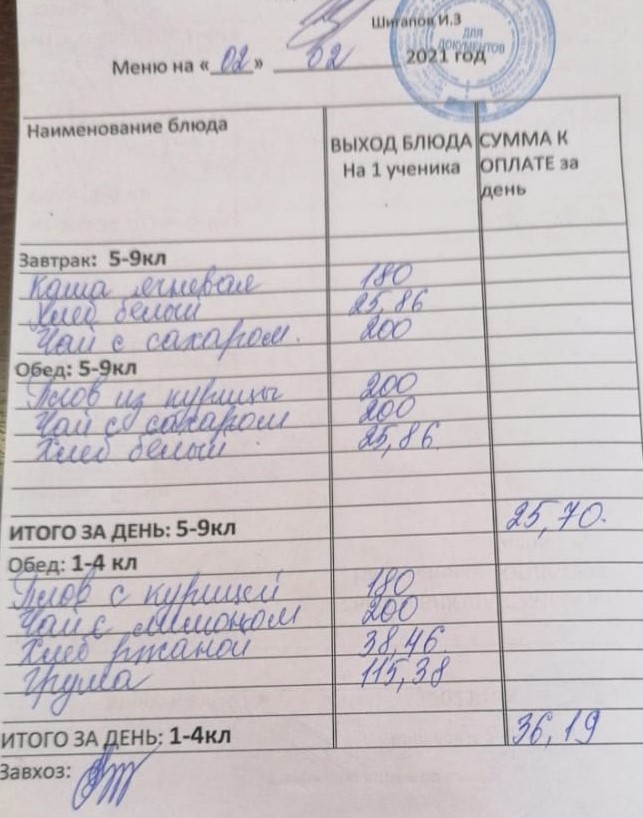 Шигапов И.З
ДЛЯ ДОКУМЕНТОВ
Меню на «02» 02 2021 год
Наименование блюда
ВЫХОД БЛЮДА На 1 ученика
СУММА К ОПЛАТЕ за день
Завтрак: 5-9кл
Каша ячневая 180
Хлеб белый 25,86
Чай с сахаром. 200
Обед: 5-9кл
Плов из курицы 200
Чай с сахаром 200
Хлеб белый 25,86
ИТОГО ЗА ДЕНЬ: 5-9кл 25,70.
Обед: 1-4 кл
Плов с курицей 180
Чай с лимоном 200
Хлеб ржаной 38,46
Груша 115,38
ИТОГО ЗА ДЕНЬ: 1-4кл 36,19
Завхоз: